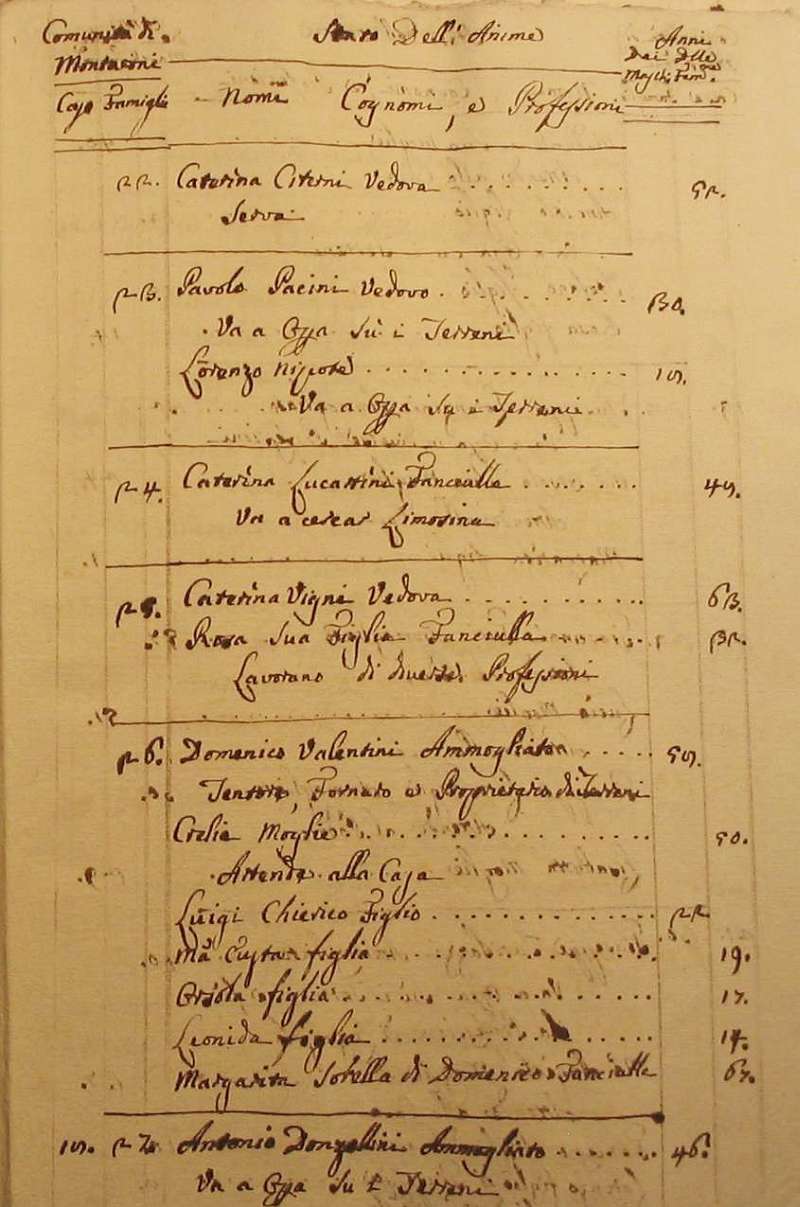 Comunità di
Stato Dell'Anime
Anni
Dei
Case Famiglie
Nomi Cognomi, e Professioni
22. Caterina Citerni Vedova 52.
Serva
23. Pavolo Pacini Vedovo 30.
Va a Opra su i Terreni
Lorenzo Nipote
Va a Opra su i Terreni
24. Caterina Lucattini Fanciulla
Va a cercar Limosina
25. Caterina Vigni Vedova 63.
Rosa sua Figlia Fanciulla 32.
Lavorano di diverse Professioni
26. Domenico Valentini Ammogliato
Tentore, Fornaro e Proprietario di Terreni
Moglie 50.
Attende alla Casa
Luigi Chierico Figlio 22
figlia 19.
Orsola figlia
Leonida figlia 14.
Margarita Sorella di Domenico Fanciulla
27. Antonio Donzellini Ammogliato 46.
Va a Opra su i Terreni